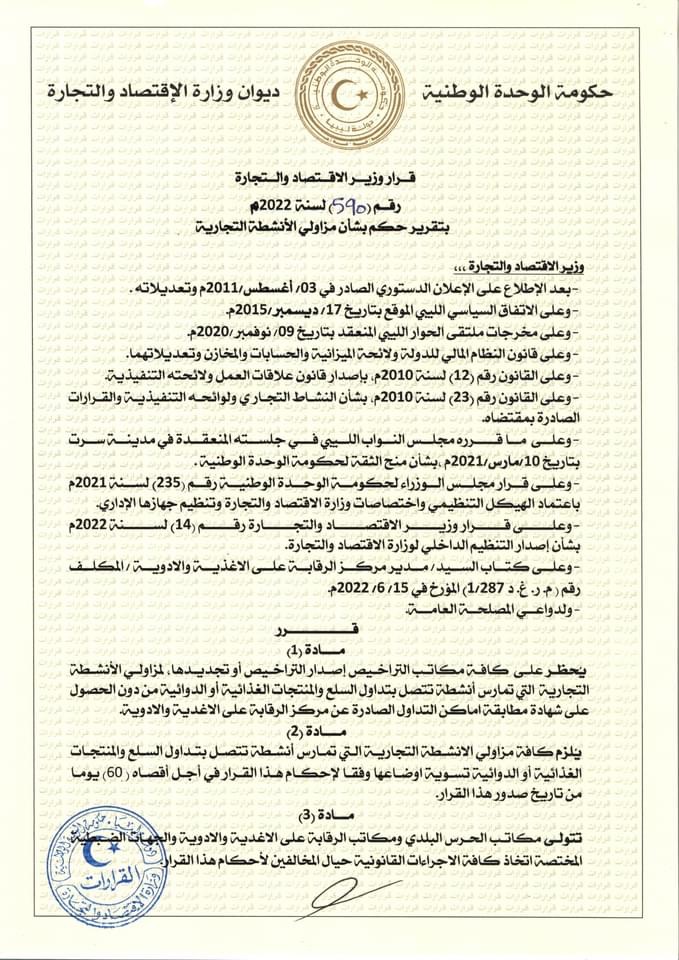 حكومة الوحدة الوطنية
ديوان وزارة الإقتصاد والتجارة
حكومة الوحدة الوطنية
دولة ليبيا
قرار وزير الاقتصاد والتجارة
رقم (590) لسنة 2022م
بتقرير حكم بشأن مزاولي الأنشطة التجارية
وزير الاقتصاد والتجارة ,,,
-بعد الإطلاع على الإعلان الدستوري الصادر في 03/ أغسطس/2011م وتعديلاته .
-وعلى الاتفاق السياسي الليبي الموقع بتاريخ 17/ ديسمبر/2015م.
-وعلى مخرجات ملتقى الحوار الليبي المنعقد بتاريخ 09/ نوفمبر/2020م.
-وعلى قانون النظام المالي للدولة ولائحة الميزانية والحسابات والمخازن وتعديلاتهما.
-وعلى القانون رقم (12) لسنة 2010م، بإصدار قانون علاقات العمل ولائحته التنفيذية.
-وعلى القانون رقم (23) لسنة 2010م، بشأن النشاط التجاري ولوائحه التنفيذية والقرارات
الصادرة بمقتضاه.
-وعلى ما قرره مجلس النواب الليبي في جلسته المنعقدة في مدينة سرت
بتاريخ 10/مارس/2021م ،بشأن منح الثقة لحكومة الوحدة الوطنية .
-وعلى قرار مجلس الوزراء لحكومة الوحدة الوطنية رقم (235) لسنة 2021م
باعتماد الهيكل التنظيمي واختصاصات وزارة الاقتصاد والتجارة وتنظيم جهازها الإداري.
-وعلى قرار وزير الاقتصاد والتجارة رقم (14) لسنة 2022م
بشأن إصدار التنظيم الداخلي لوزارة الاقتصاد والتجارة.
-وعلى كتاب السيد/ مدير مركز الرقابة على الاغذية والادوية / المكلف
رقم ( م. ر. غ. د 1/287) المؤرخ في 15/ 6/ 2022م.
-ولدواعي المصلحة العامة.
قرر
مادة (1)
يُحظر على كافة مكاتب التراخيص إصدار التراخيص أو تجديدها، لمزاولي الأنشطة
التجارية التي تمارس أنشطة تتصل بتداول السلع والمنتجات الغذائية أو الدوائية من دون الحصول
على شهادة مطابقة اماكن التداول الصادرة عن مركز الرقابة على الاغدية والادوية.
مادة (2)
يلزم كافة مزاولي الانشطة التجارية التي تمارس أنشطة تتصل بتداول السلع والمنتجات
الغذائية أو الدوائية تسوية اوضاعها وفقا لإحكام هذا القرار في أجل أقصاه (60) يوما
من تاريخ صدور هذا القرار.
مادة (3)
تتولى مكاتب الحرس البلدي ومكاتب الرقابة على الاغدية والادوية والجهات الضبطية
المختصة اتخاذ كافة الاجراءات القانونية حيال المخالفين لأحكام هذا القرار.
القرارات
وزارة الإقتصاد والتجارة